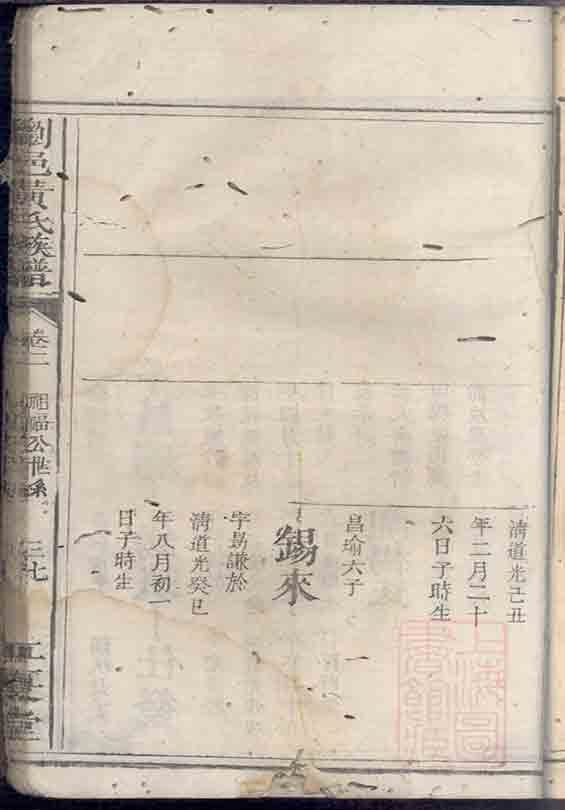 清道光己丑
年二月二十
六日子時生
昌瑜六子
錫來
字昜謙於
清道光癸巳
年八月初一
日子時生
劉邑黃氏族譜
卷二
公世系
二七
堂
上海圖書館藏